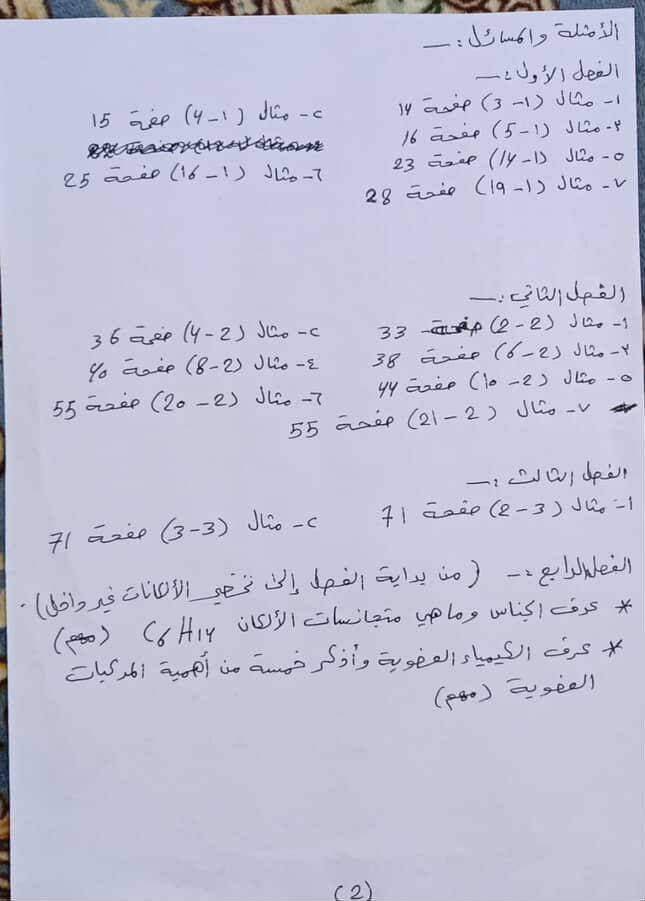 الأمثلة والمسائل :ـ
الفصل الأول :ـ
١- مثال (1-3) صفحة 14
٢- مثال (1-4) صفحة 15
٣- مثال (1-5) صفحة 16
٥- مثال (1-14) صفحة 23
٦- مثال (1-16) صفحة 25
٧- مثال (1-19) صفحة 28
الفصل الثاني :ـ
١- مثال (2-2) صفحة 33
٢- مثال (2-4) صفحة 36
٣- مثال (2-6) صفحة 38
٤- مثال (2-8) صفحة 40
٥- مثال (2-10) صفحة 44
٦- مثال (2-20) صفحة 55
٧- مثال (2-21) صفحة 55
الفصل الثالث :ـ
١- مثال (3-2) صفحة 71
٢- مثال (3-3) صفحة 71
الفصل الرابع :ـ (من بداية الفصل إلى تحضير الألكانات غير داخل).
* عرف الجناس وما هي متجانسات الألكان C6H14 (مهم)
* عرف الكيمياء العضوية وأذكر خمسة من أهمية المركبات
العضوية (مهم)
(2)